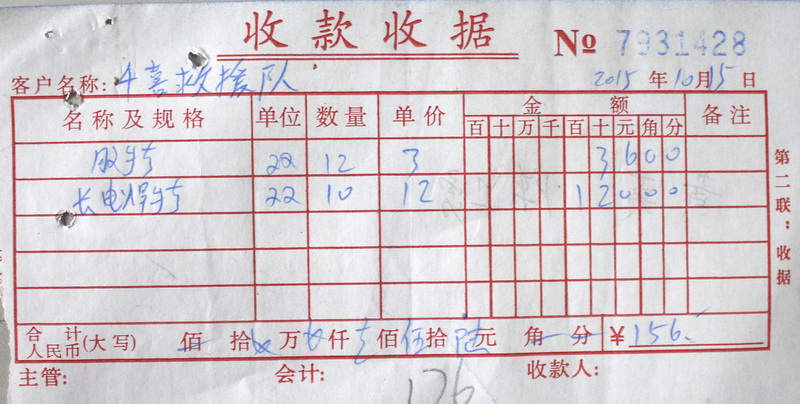 收款收据 No 7931428
客户名称: 千喜救援队 2015 年 10 月 15 日
名称及规格 单位 数量 单价 金额 备注
百 十 万 千 百 十 元 角 分
胶 22 12 3 3 6 0 0
长电焊 22 10 12 1 2 0 0 0
第二联:收据
合计人民币(大写) 佰 拾 万 仟 壹 佰 伍 拾 陆 元 角 分 ¥156.
主管: 会计: 收款人:
176